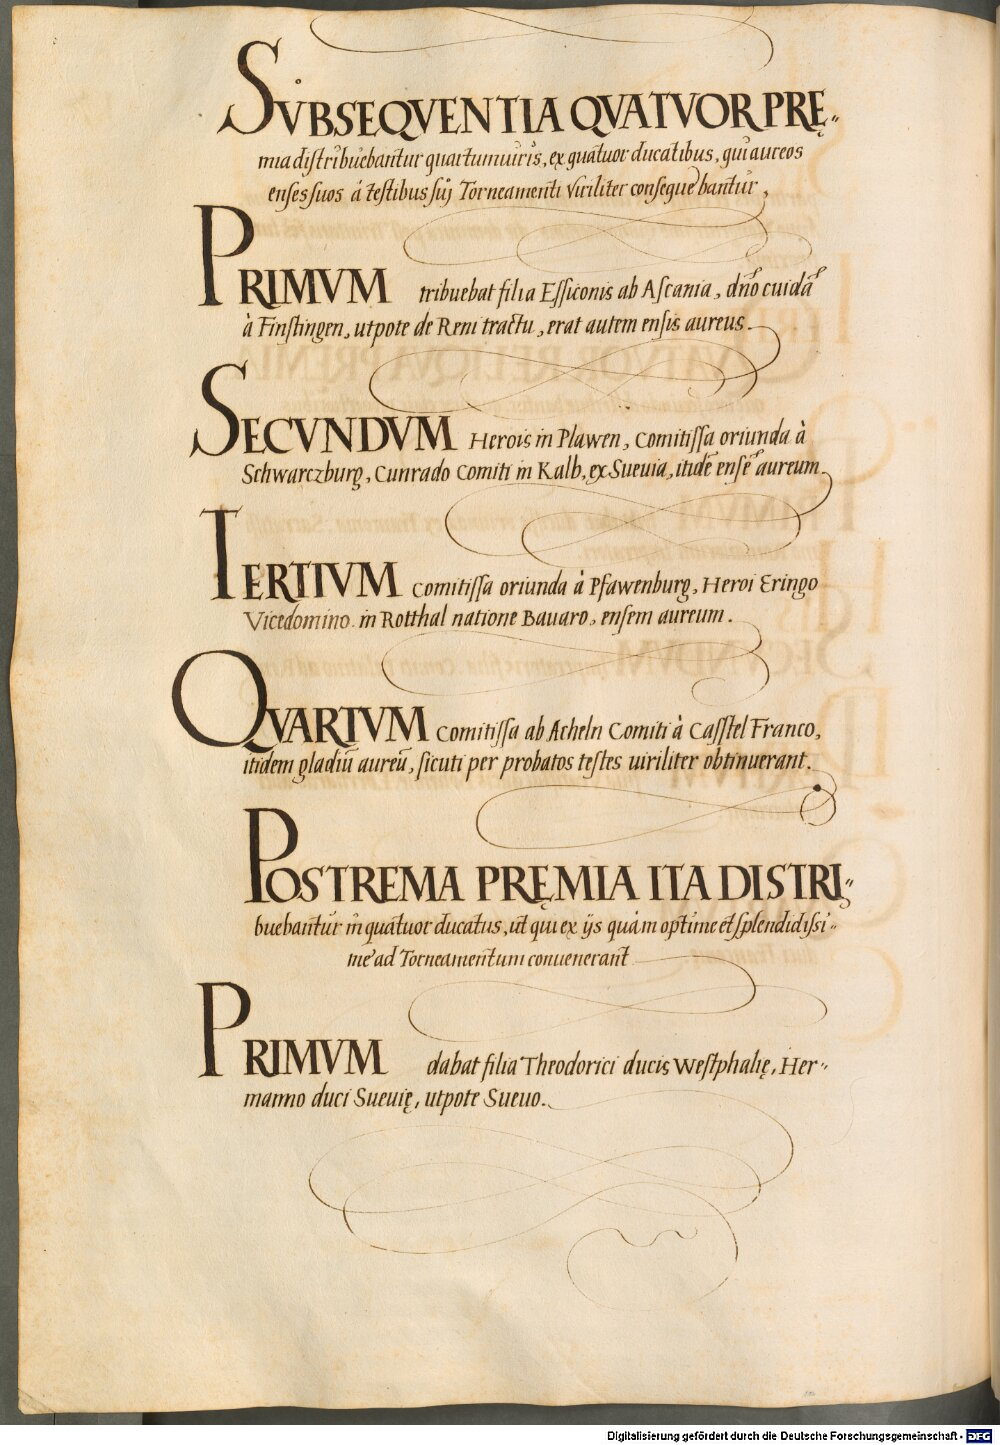 SVBSEQVENTIA QVATVOR PRĘ⸗
mia distribuebantur quartumuiris, ex quatuor ducatibus, qui aureos
enses suos á testibus sųj Torneamenti viriliter consequebantur,
PRIMVM tribuebat filia Essiconis ab Ascania, dño cuidã
à Finstingen, utpote de Reni tractu, erat autem ensis aureus.
SECVNDVM Herois in Plawen, Comitissa oriunda à
Schwarczburg, Cunrado Comiti in Kalb, ex Sueuia, itidẽ ensẽ aureum.
TERTIVM Comitissa oriunda à Pfawenburg, Heroi Eringo
Vicedomino in Rotthal natione Bauaro, ensem aureum.
QVARTVM Comitissa ab Acheln Comiti à Casstel Franco,
itidem gladiũ aureũ, sicuti per probatos testes uiriliter obtinuerant.
POSTREMA PRĘMIA ITA DISTRI⸗
buebantur in quatuor ducatus, ut qui ex ijs quàm optime et splendidissi⸗
me ad Torneamentum conuenerant
PRIMVM dabat filia Theodorici ducis Westphalię, Her⸗
manno duci Sueuię, utpote Sueuo.
Digitalisierung gefördert durch die Deutsche Forschungsgemeinschaft - DFG